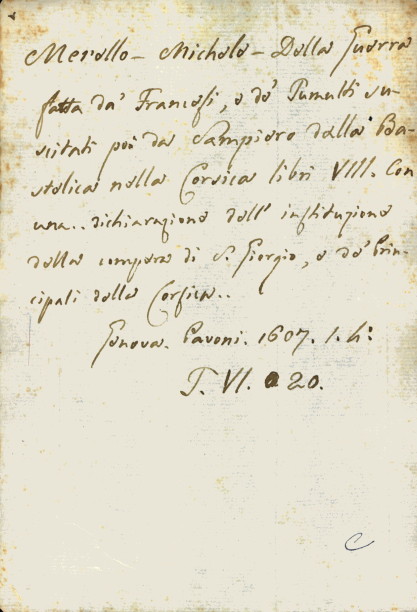 Merello - Michele - Della Guerra
fatta da' Francesi, e de' Tumulti su-
scitati poi da Sampiero dalla Ba-
stelica nella Corsica libri VIII. Con
una.. dichiarazione dell' instituzione
della compera di S. Giorgio, e de' Prin-
cipali della Corsica..
Genova. Pavoni. 1607. 1. h:
T. VI. 20.
C